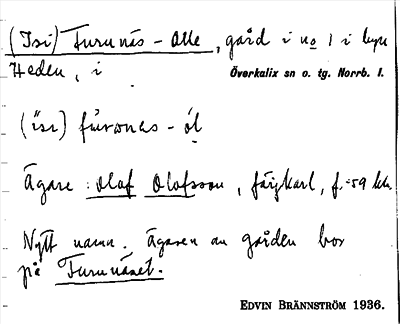 (Isi) Furunäs-Olle, gård i no 1 i byn
Heden, i Överkalix sn o. tg. Norrb. l.
(isi) fúronɛs-òl
Ägare: Olaf Olofsson, färjkarl, f. -59
Nytt namn. Ägaren av gården bor
på Furunäset.
EDVIN BRÄNNSTRÖM 1936.